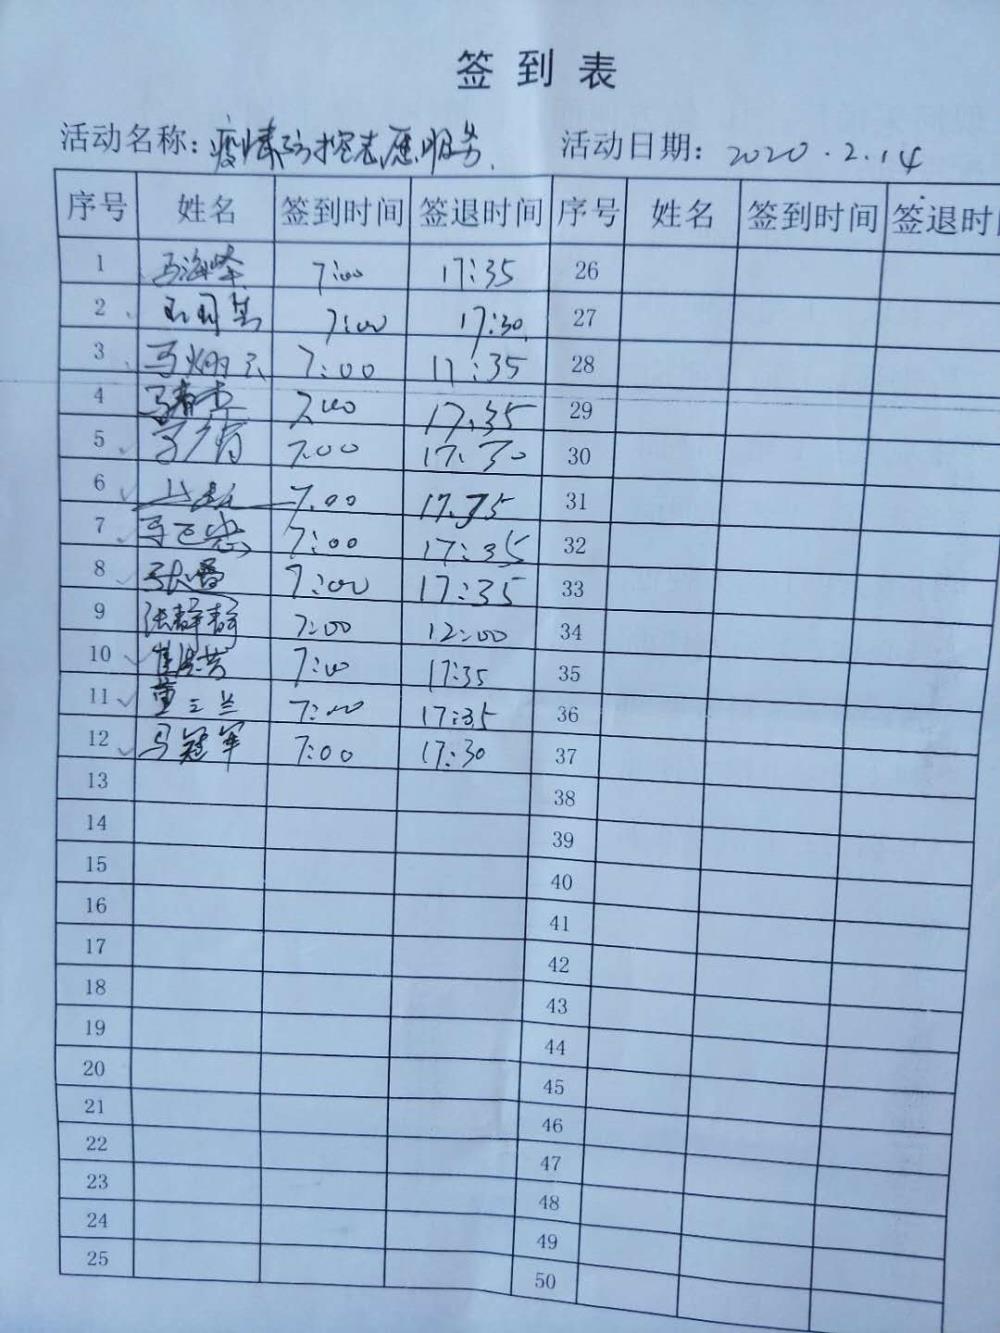 签到表
活动名称：疫情防控志愿服务 活动日期：2020.2.14
序号 姓名 签到时间 签退时间 序号 姓名 签到时间 签退时
1 马海峰 7:00 17:35 26
2 7:00 17:30 27
3 马炳云 7:00 17:35 28
4 马春杰 7:00 17:35 29
5 7:00 17:30 30
6 7:00 17:35 31
7 7:00 17:35 32
8 7:00 17:35 33
9 张静静 7:00 12:00 34
10 7:00 17:35 35
11 董三兰 7:00 17:35 36
12 马冠军 7:00 17:30 37
13 38
14 39
15 40
16 41
17 42
18 43
19 44
20 45
21 46
22 47
23 48
24 49
25 50